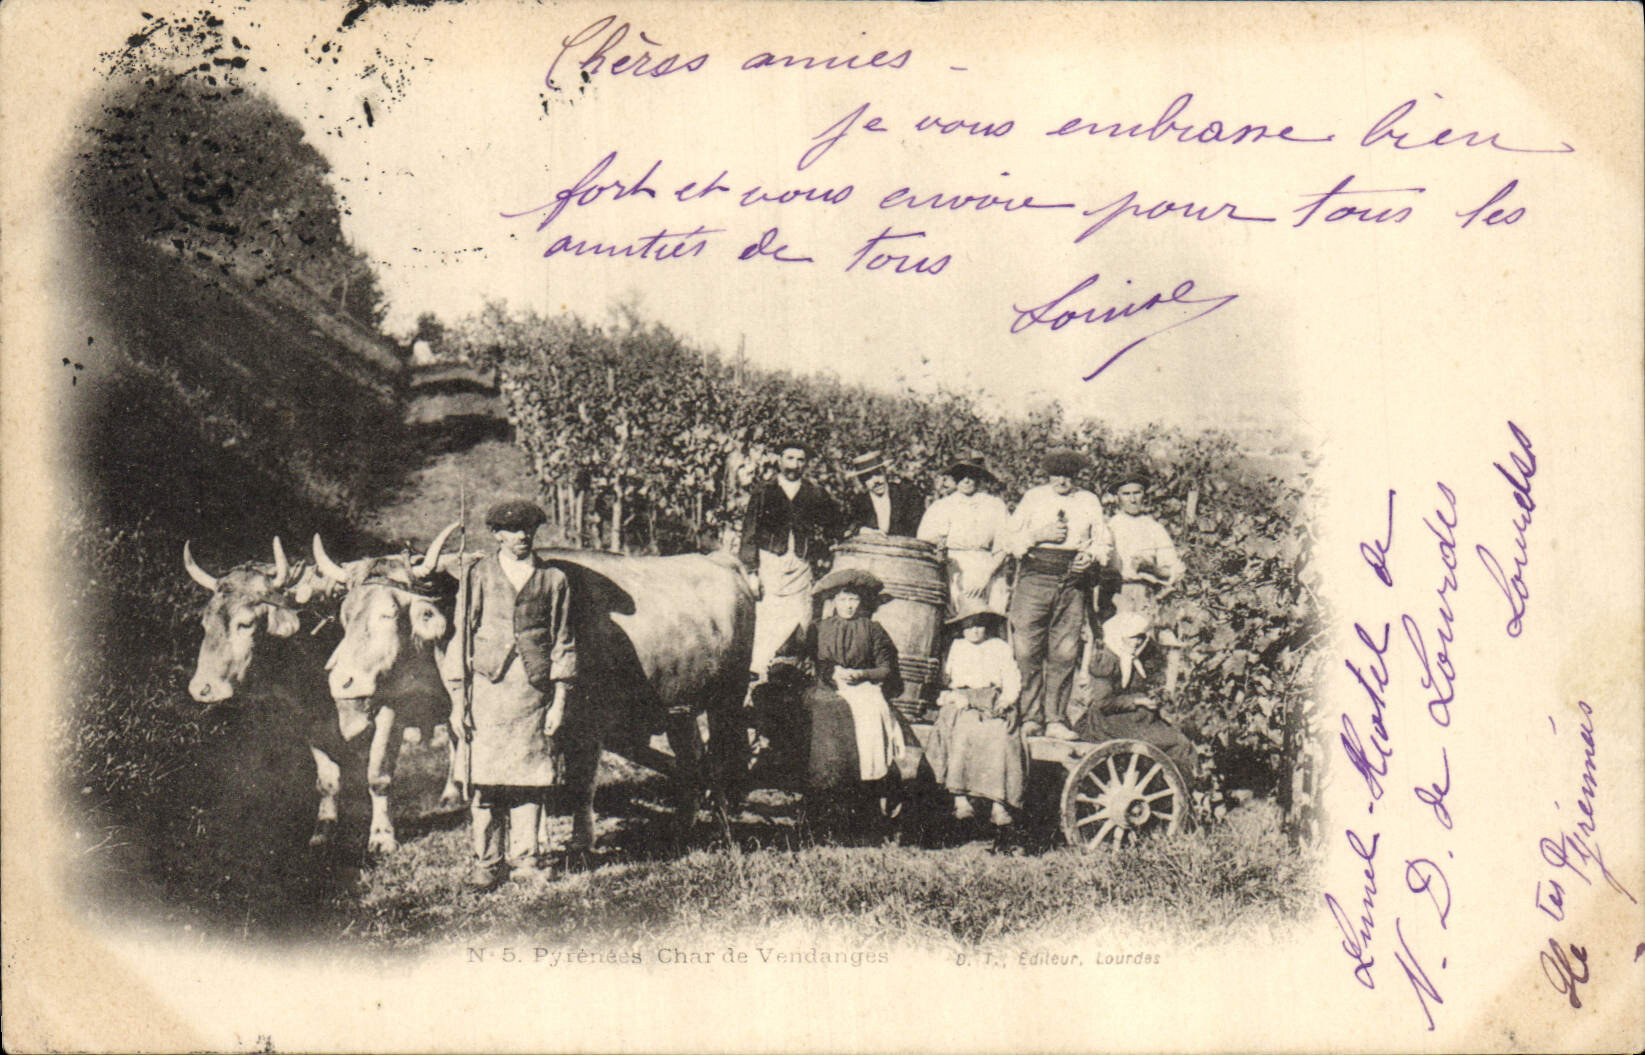 Chères amies -
je vous embrasse bien
fort et vous envoie pour tous les
amitiés de tous
Louise
N° 5. Pyrénées Char de Vendanges
D. T., Editeur, Lourdes
Hotel de
N. D. de Lourdes
Lourdes
Htes Pyrénnées